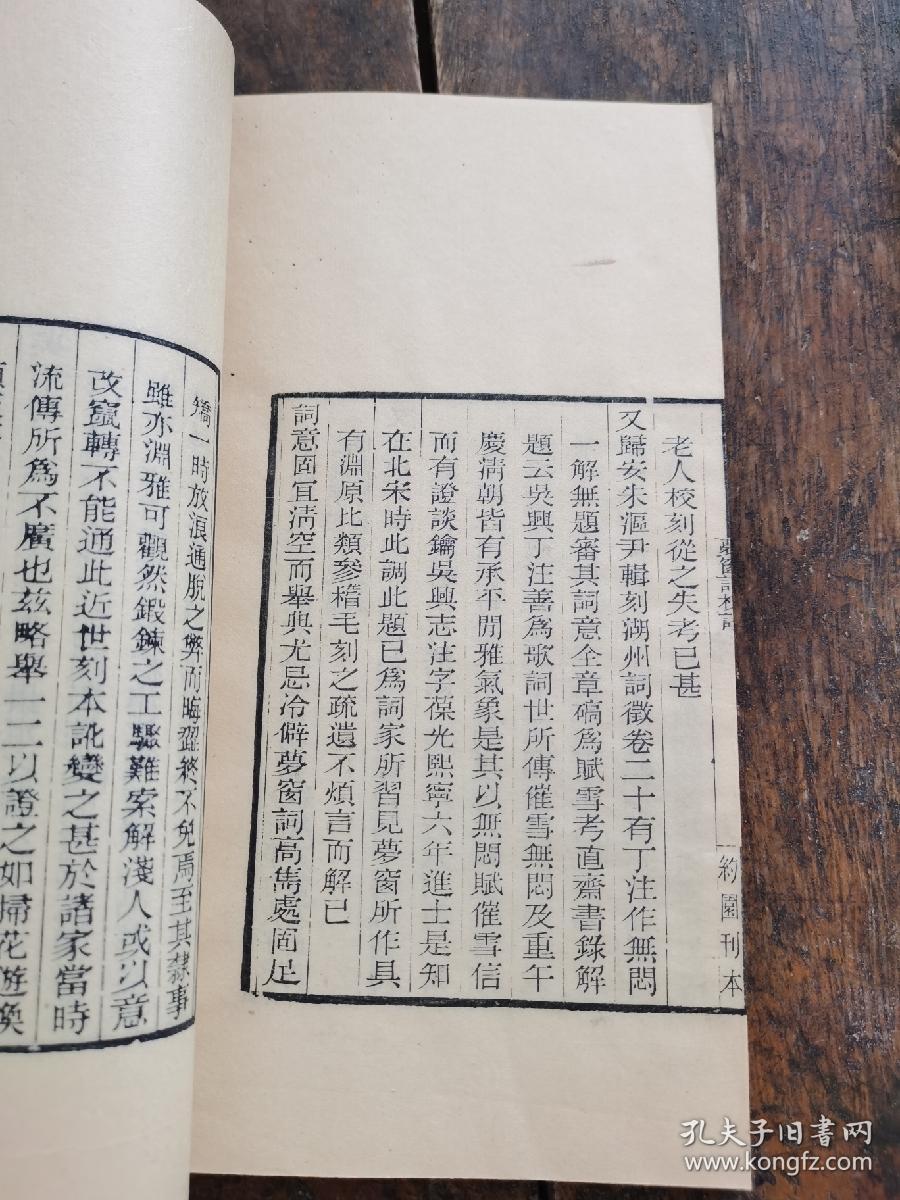 老人校刻從之失考已甚
又歸安朱漚尹輯刻湖州詞徵卷二十有丁注作無悶
一解無題審其詞意全章碻爲賦雪考直齋書錄解
題云吳興丁注善爲歌詞世所傳催雪無悶及重午
慶清朝皆有承平閒雅氣象是其以無悶賦催雪信
而有證談鑰吳興志注字葆光熙寧六年進士是知
在北宋時此調此題已爲詞家所習見夢窗所作具
有淵原比類參稽毛刻之疏遺不煩言而解已
詞意固宜清空而舉典尤忌冷僻夢窗詞高雋處固足
約園刊本
矯一時放浪通脫之弊而晦澀終不免焉至其隸事
雖亦淵雅可觀然鍛鍊之工驟難索解淺人或以意
改竄轉不能通此近世刻本訛變之甚於諸家當時
流傳所爲不廣也茲略舉一二以證之如掃花遊換
孔夫子旧书网
www.kongfz.com